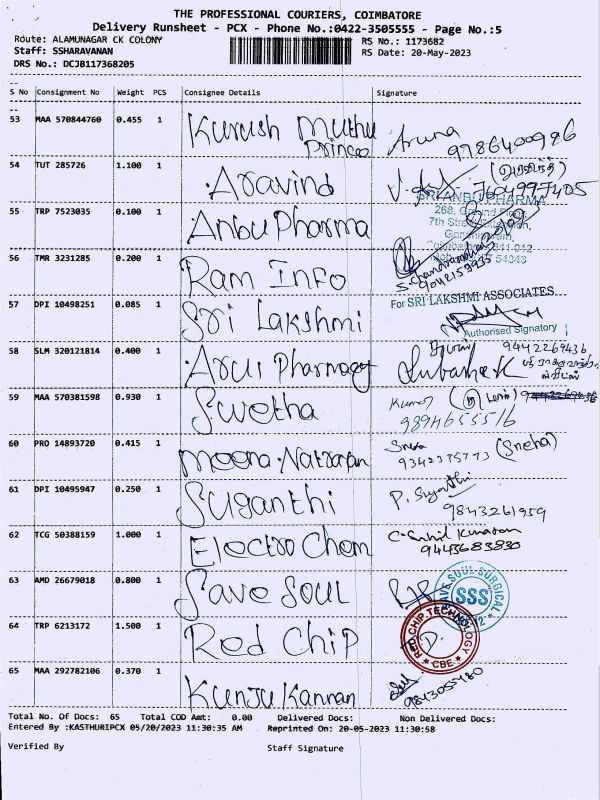 THE PROFESSIONAL COURIERS, COIMBATORE
Delivery Runsheet - PCX - Phone No.:0422-3505555 - Page No.:5
Route: ALAMUNAGAR CK COLONY
RS No.: 1173682
Staff: SSHARAVANAN
RS Date: 20-May-2023
DRS No.: DCJB117368205
S No Consignment No Weight PCS Consignee Details Signature
53 MAA 570844760 0.455 1 Kurush Muthu
Prince
Aruna
9786400986
54 TUT 285726 1.100 1 Aravind
7604997405
SRI ANBU PHARMA
55 TRP 7523035 0.100 1 Anbu Pharma
268,
7th
56 TMR 3231285 0.200 1 Ram Info
9042153935
57 DPI 10498251 0.085 1 Sri Lakshmi
For SRI LAKSHMI ASSOCIATES
Authorised Signatory
58 SLM 320121814 0.400 1 Arul Pharmacy
9442269436
59 MAA 570381598 0.930 1 Swetha
Kumar
9894655516
60 PRO 14893720 0.415 1 Meena Natrajan
Sneha (Sneha)
9342375773
61 DPI 10495947 0.250 1 Suganthi
P. Suganthi
9843261959
62 TCG 50388159 1.000 1 Electro Chem
C. Senthil Kumaran
9443683830
63 AMD 26679018 0.800 1 Save Soul
SAVE SOUL SURGICAL
SSS
64 TRP 6213172 1.500 1 Red Chip
RED CHIP TECHNOLOGY
CBE
65 MAA 292782106 0.370 1 Kunju Kannan
9843055480
Total No. Of Docs: 65 Total COD Amt: 0.00 Delivered Docs: Non Delivered Docs:
Entered By :KASTHURIPCX 05/20/2023 11:30:35 AM Reprinted On: 20-05-2023 11:30:58
Verified By Staff Signature